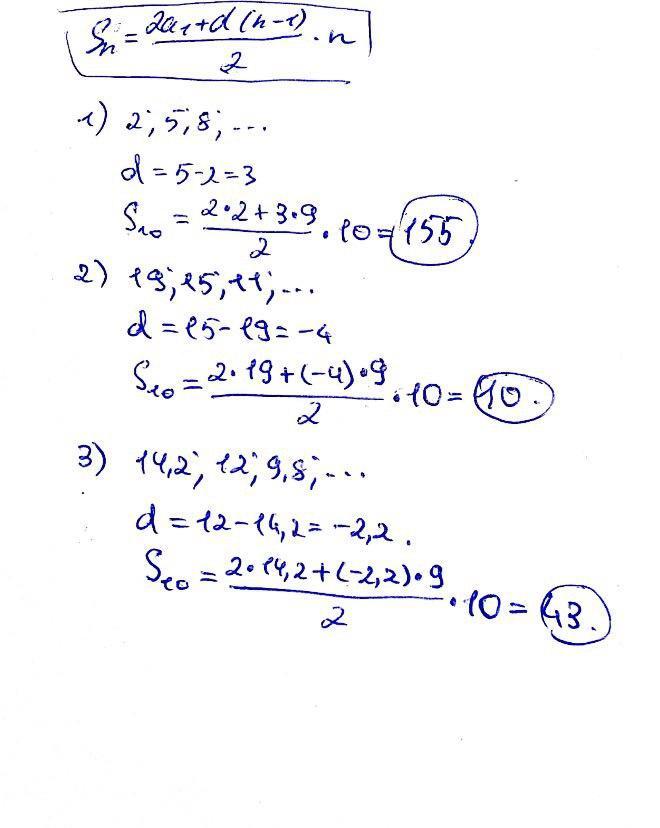 Sn = (2a₁ + d(n-1))/2 · n
1) 2; 5; 8; ...
d = 5-2 = 3
S₁₀ = (2·2 + 3·9)/2 · 10 = 155.
2) 19; 15; 11; ...
d = 15 - 19 = -4
S₁₀ = (2·19 + (-4)·9)/2 · 10 = 10.
3) 14,2; 12; 9,8; ...
d = 12 - 14,2 = -2,2.
S₁₀ = (2·14,2 + (-2,2)·9)/2 · 10 = 43.